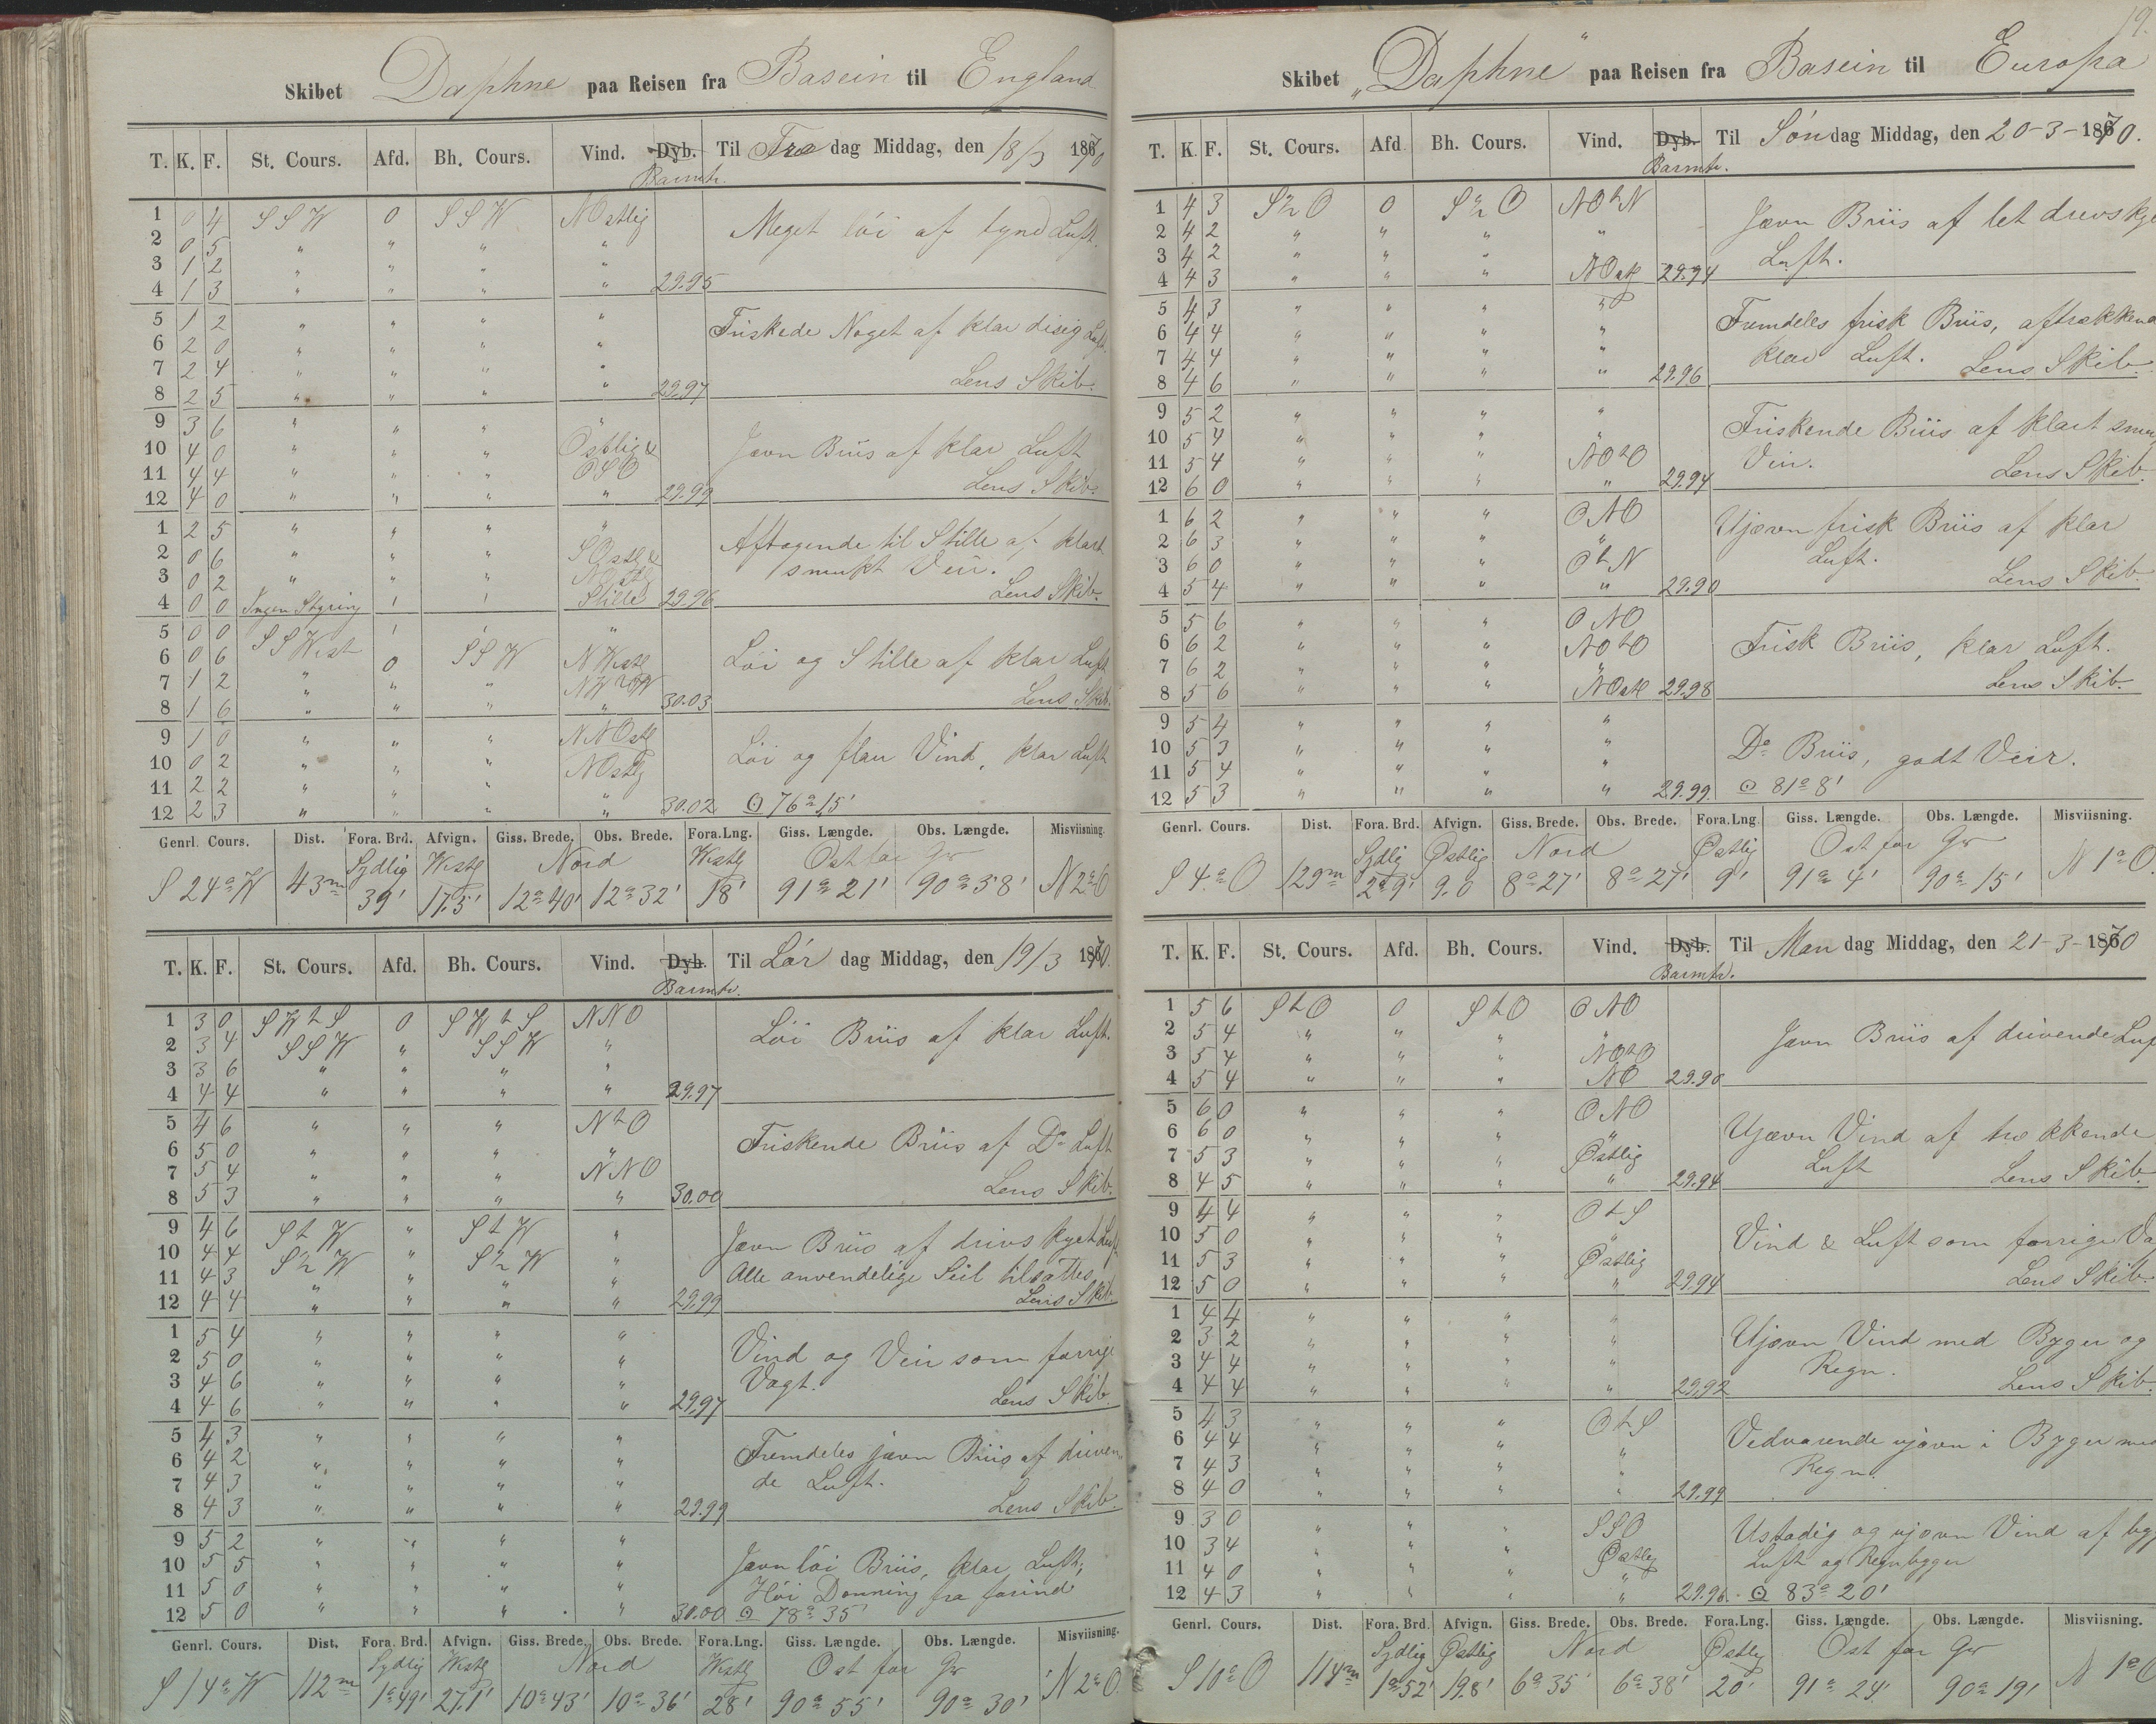 Skibet Daphne paa Reisen fra Basein til England
T. K. F. St. Cours. Afd. Bh. Cours. Vind. Dyb. Barmtr. Til Fre dag Middag, den 18/3 1870
1 0 4 SSW 0 SSW NOstlig Meget löi af tynd Luft.
2 0 5 " " " "
3 1 2 " " " "
4 1 3 " " " " 29.95
5 1 2 " " " " Friskede Noget af klar disig Luft.
6 2 0 " " " "
7 2 4 " " " "
8 2 5 " " " " 29.97 Lens Skib.
9 3 6 " " " "
10 4 0 " " " Ostlig & Jævn Briis af klar Luft
11 4 4 " " " OSO
12 4 0 " " " " 29.99 Lens Skib.
1 2 5 " " " " Aftagende til Stille af klart
2 0 6 " " " SOstl & smukt Veir.
3 0 2 " " " NOstlg
4 0 0 Ingen Styring Stille 29.96 Lens Skib.
5 0 0 "
6 0 6 SSWest 0 SSW NWestl Löi og Stille af klar Luft
7 1 2 " " " NWtW
8 1 6 " " " " 30.03 Lens Skib.
9 1 0 " " " NNOstl
10 0 2 " " " NOstlg Löi og flau Vind, klar Luft
11 2 2 " " "
12 2 3 " " " " 30.02 ☉ 76° 15'
Genrl. Cours. Dist. Fora. Brd. Afvign. Giss. Brede. Obs. Brede. Fora.Lng. Giss. Længde. Obs. Længde. Misviisning.
Sydlig Westl Nord Westl Ost for Gw
S 24° W 43m 39' 17.5' 12° 40' 12° 32' 18' 91° 21' 90° 58' N 2° O
T. K. F. St. Cours. Afd. Bh. Cours. Vind. Dyb. Barmtr. Til Lör dag Middag, den 19/3 1870.
1 3 0 SWtS 0 SWtS NNO Löi Briis af klar Luft.
2 3 4 SSW " SSW "
3 3 6 " " " "
4 4 4 " " " " 29.97
5 4 6 " " " NtO
6 5 0 " " " " Friskende Briis af Do Luft
7 5 4 " " " NNO
8 5 3 " " " " 30.00 Lens Skib.
9 4 6 StW " StW " Jævn Briis af drivs kyet Luft
10 4 4 S½W " S½W "
11 4 3 " " " " Alle anvendelige Seil tilsattes
12 4 4 " " " " 29.99 Lens Skib.
1 5 4 " " " " Vind og Veir som forrige
2 5 0 " " " "
3 4 6 " " " " Vagt.
4 4 6 " " " " 29.97 Lens Skib.
5 4 3 " " " " Fremdeles jævn Briis af driven
6 4 2 " " " "
7 4 3 " " " " de Luft.
8 4 3 " " " " 29.99 Lens Skib.
9 5 2 " " " "
10 5 5 " " " " Jævn löi Briis, klar Luft;
11 5 0 " " " " Höi Dønning fra forind
12 5 0 " " " " 30.00 ☉ 78° 35'
Genrl. Cours. Dist. Fora. Brd. Afvign. Giss. Brede. Obs. Brede. Fora.Lng. Giss. Længde. Obs. Længde. Misviisning.
Sydlig Westl Nord Westl Ost for Gw
S 14° W 112m 1° 49' 27.1' 10° 43' 10° 36' 28' 90° 55' 90° 30' N 2° O.
19.
Skibet „Daphne" paa Reisen fra Basein til Europa
T. K. F. St. Cours. Afd. Bh. Cours. Vind. Dyb. Barmtr. Til Sön dag Middag, den 20-3-1870.
1 4 3 S½O 0 S½O NOtN Jævn Briis af let drevskye
2 4 2 " " " "
3 4 2 " " " Luft.
4 4 3 " " " NOstl 29.94
5 4 3 " " " "
6 4 4 " " " " Fremdeles frisk Briis, aftrækkend
7 4 4 " " " " klar Luft.
8 4 6 " " " " 29.96 Lens Skib.
9 5 2 " " " "
10 5 4 " " " " Friskende Briis af klart smu
11 5 4 " " " NOtO Veir.
12 6 0 " " " " 29.94 Lens Skib.
1 6 2 " " " ONO Ujævn frisk Briis af klar
2 6 3 " " " "
3 6 0 " " " OtN Luft.
4 5 4 " " " " 29.90 Lens Skib.
5 5 6 " " " ONO
6 6 2 " " " NOtO Frisk Briis, klar Luft.
7 6 2 " " " "
8 5 6 " " " NOstl 29.98 Lens Skib.
9 5 4 " " " "
10 5 3 " " " " Do Briis, godt Veir.
11 5 4 " " " "
12 5 3 " " " " 29.99. ☉ 81° 8'
Genrl. Cours. Dist. Fora. Brd. Afvign. Giss. Brede. Obs. Brede. Fora.Lng. Giss. Længde. Obs. Længde. Misviisning.
Sydlig Østlig Nord Østlig Ost for Gw
S 4° O 129m 2° 9' 9.0 8° 27' 8° 27' 9' 91° 4' 90° 15' N 1° O.
T. K. F. St. Cours. Afd. Bh. Cours. Vind. Dyb. Barmtr. Til Man dag Middag, den 21-3-1870
1 5 6 StO 0 StO ONO
2 5 4 " " " " Jævn Briis af drivende Luf
3 5 4 " " " NOtO
4 5 4 " " " NO 29.90
5 6 0 " " " ONO
6 6 0 " " " " Ujævn Vind af trækkende
7 5 3 " " " Østlig Luft
8 4 5 " " " " 29.94 Lens Skib.
9 4 4 " " " OtS
10 5 0 " " " " Vind & Luft som forrige Va
11 5 3 " " " Østlig
12 5 0 " " " " 29.94 Lens Skib.
1 4 4 " " " "
2 3 2 " " " " Ujævn Vind med Byger og
3 4 4 " " " " Regn.
4 4 4 " " " " 29.92 Lens Skib.
5 4 3 " " " OtS
6 4 4 " " " " Vedvarende ujævn i Byger med
7 4 3 " " " " Regn.
8 4 0 " " " " 29.99
9 3 0 " " " SSO Ustadig og ujævn Vind af byg
10 3 4 " " " Østlig Luft og Regnbyger
11 4 0 " " " "
12 4 3 " " " " 29.96. ☉ 83° 20'
Genrl. Cours. Dist. Fora. Brd. Afvign. Giss. Brede. Obs. Brede. Fora.Lng. Giss. Længde. Obs. Længde. Misviisning.
Sydlig Østlig Nord Østlig Ost for Gw
S 10° O 114m 1° 52' 19.8' 6° 35' 6° 38' 20' 91° 24' 90° 19' N 1° O